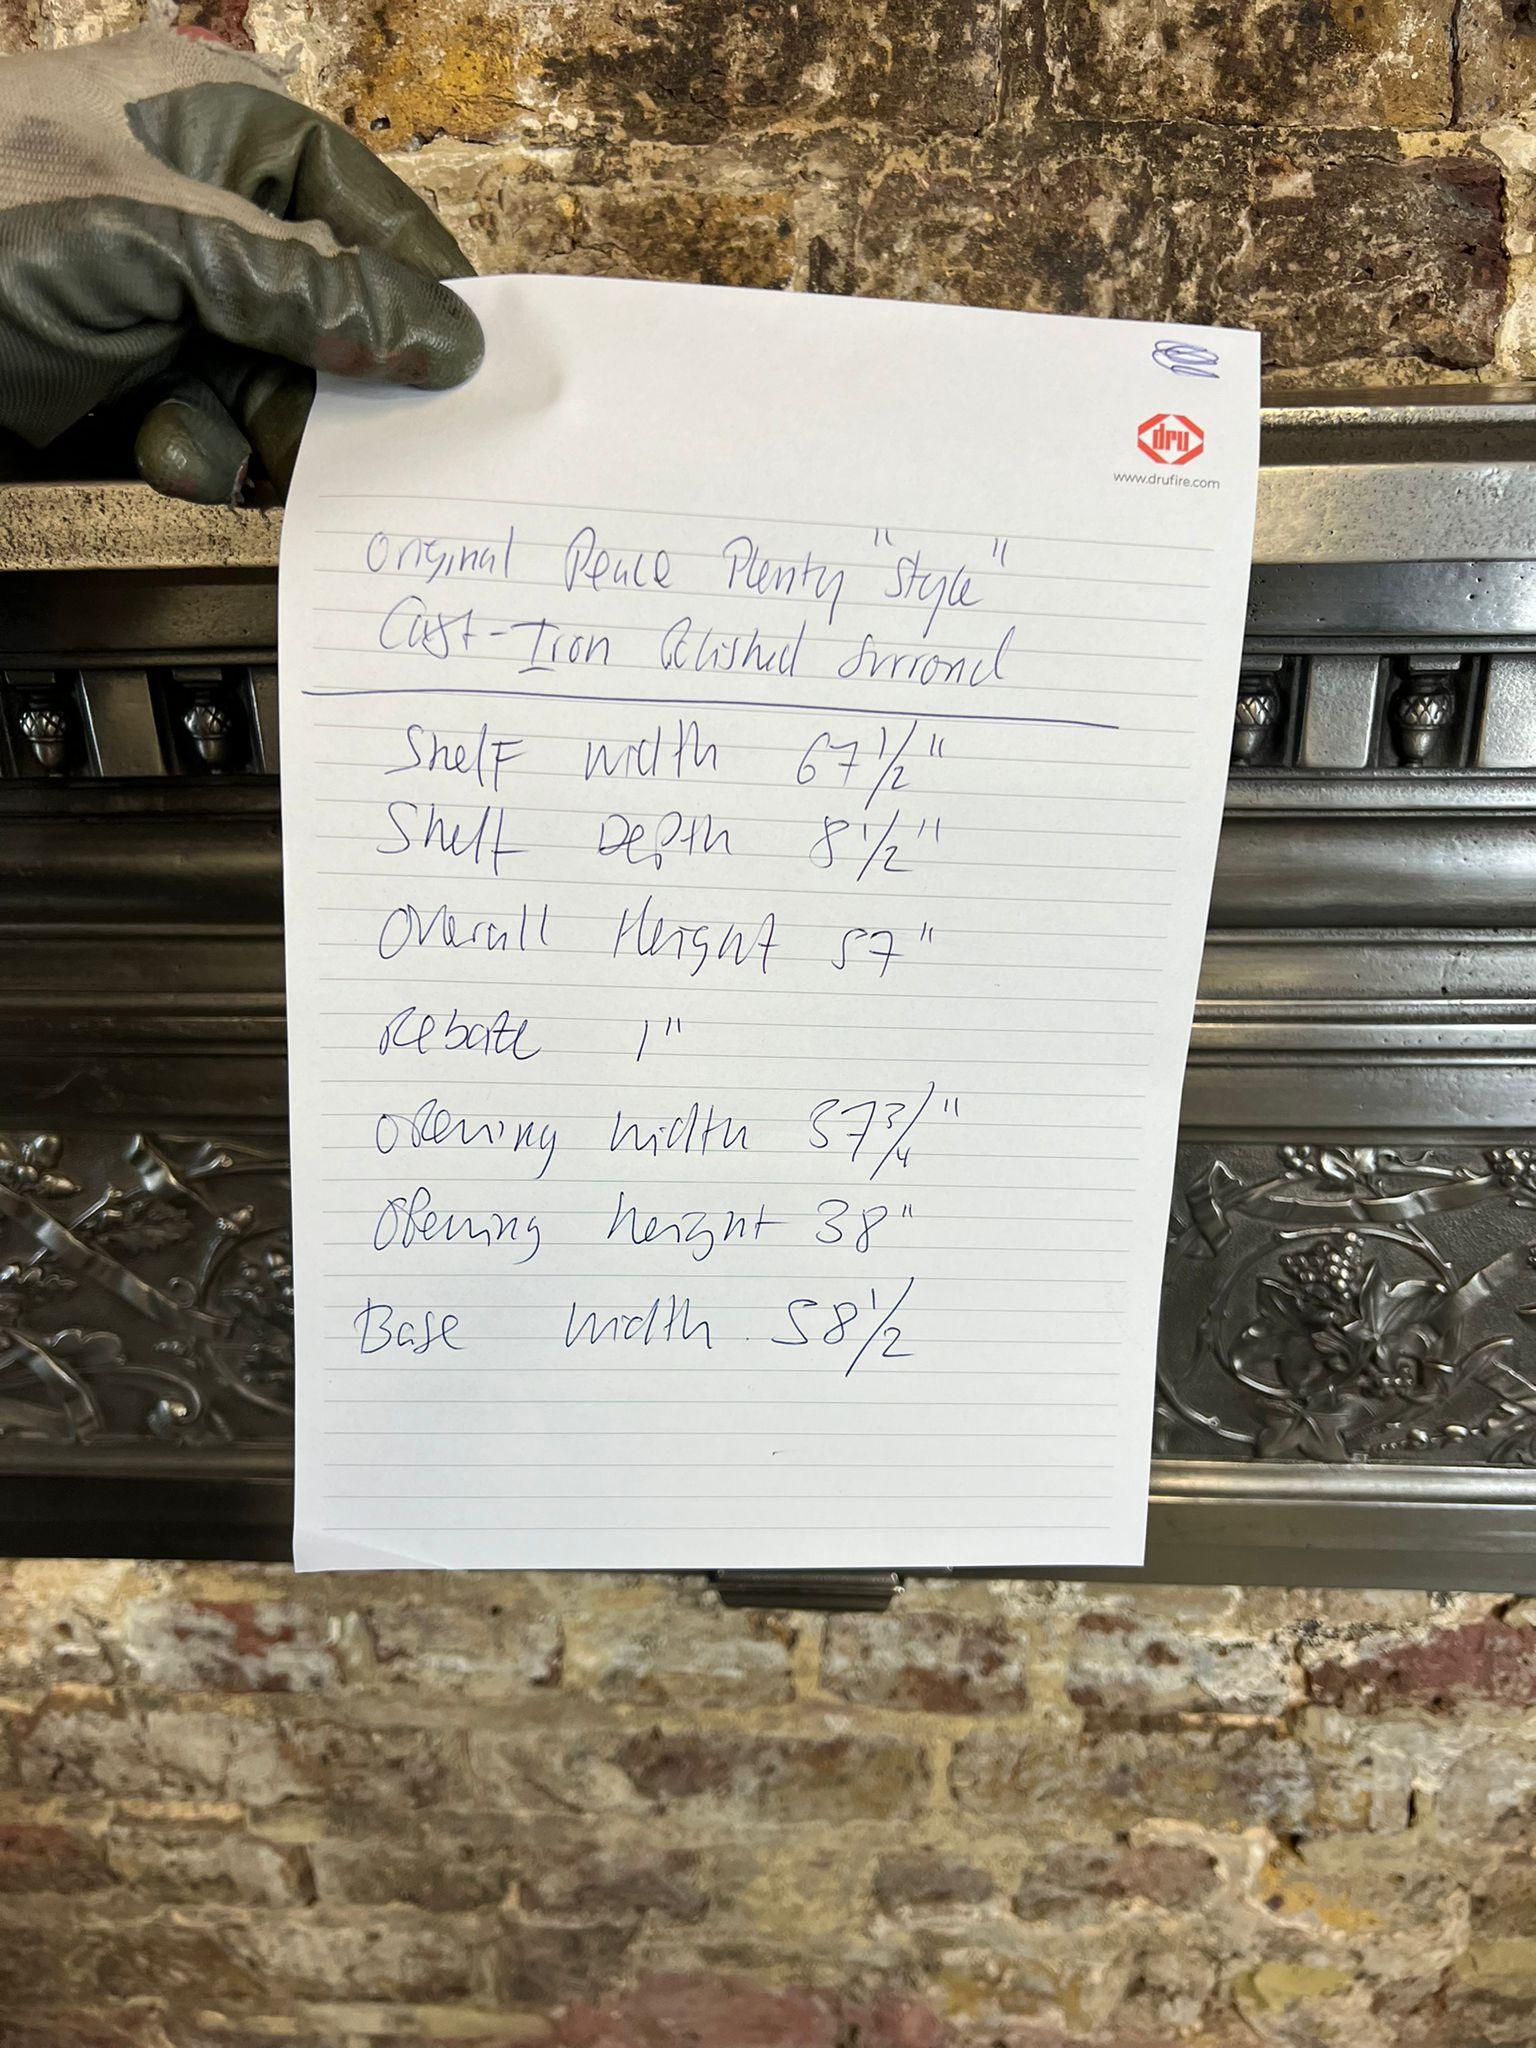 dru
www.drufire.com
Original Peace Plenty "Style"
Cast-Iron Polished Surrond
Shelf width 67 1/2"
Shelf Depth 8 1/2"
Overall Height 57"
Rebate 1"
Opening width 37 3/4"
Opening height 38"
Base width 58 1/2